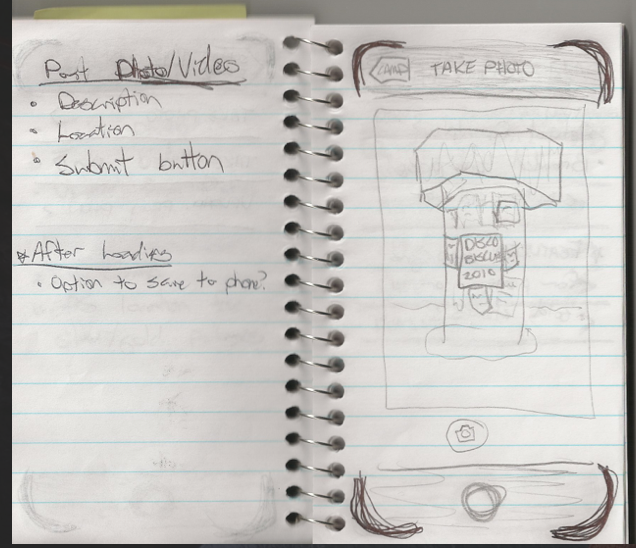 Post Photo/Video
• Description
• Location
• Submit button
*After Loading
• Option to save to phone?
CAMP
TAKE PHOTO
DISCO
BISCUI
2010